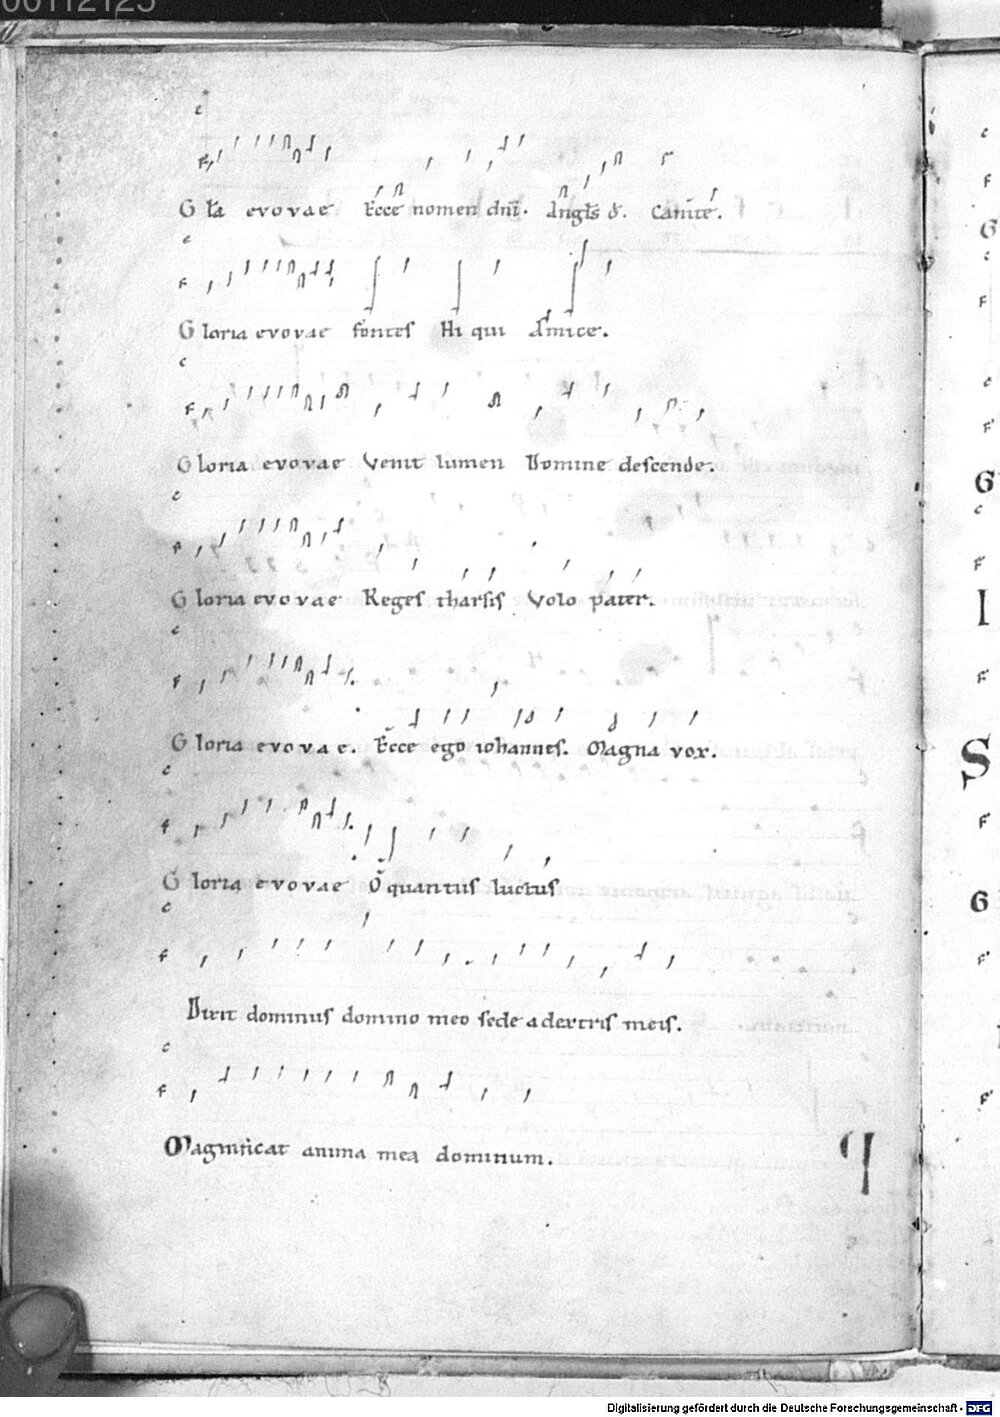 00112125
c
F
Gl̄a evovae Ecce nomen dn̄i. Angl̄s d̄. Canite.
c
F
Gloria evovae fontes Hi qui Amice.
c
F
Gloria evovae Venit lumen Domine descende.
c
F
Gloria evovae Reges tharsis Volo pater.
c
F
Gloria evovae. Ecce ego iohannes. Magna vox.
c
F
Gloria evovae O quantus luctus
c
F
Dixit dominus domino meo sede a dextris meis.
c
F
Magnificat anima mea dominum.
c
F
G
c
F
c
F
G
c
F
I
F
S
F
G
F
F
Digitalisierung gefördert durch die Deutsche Forschungsgemeinschaft - DFG